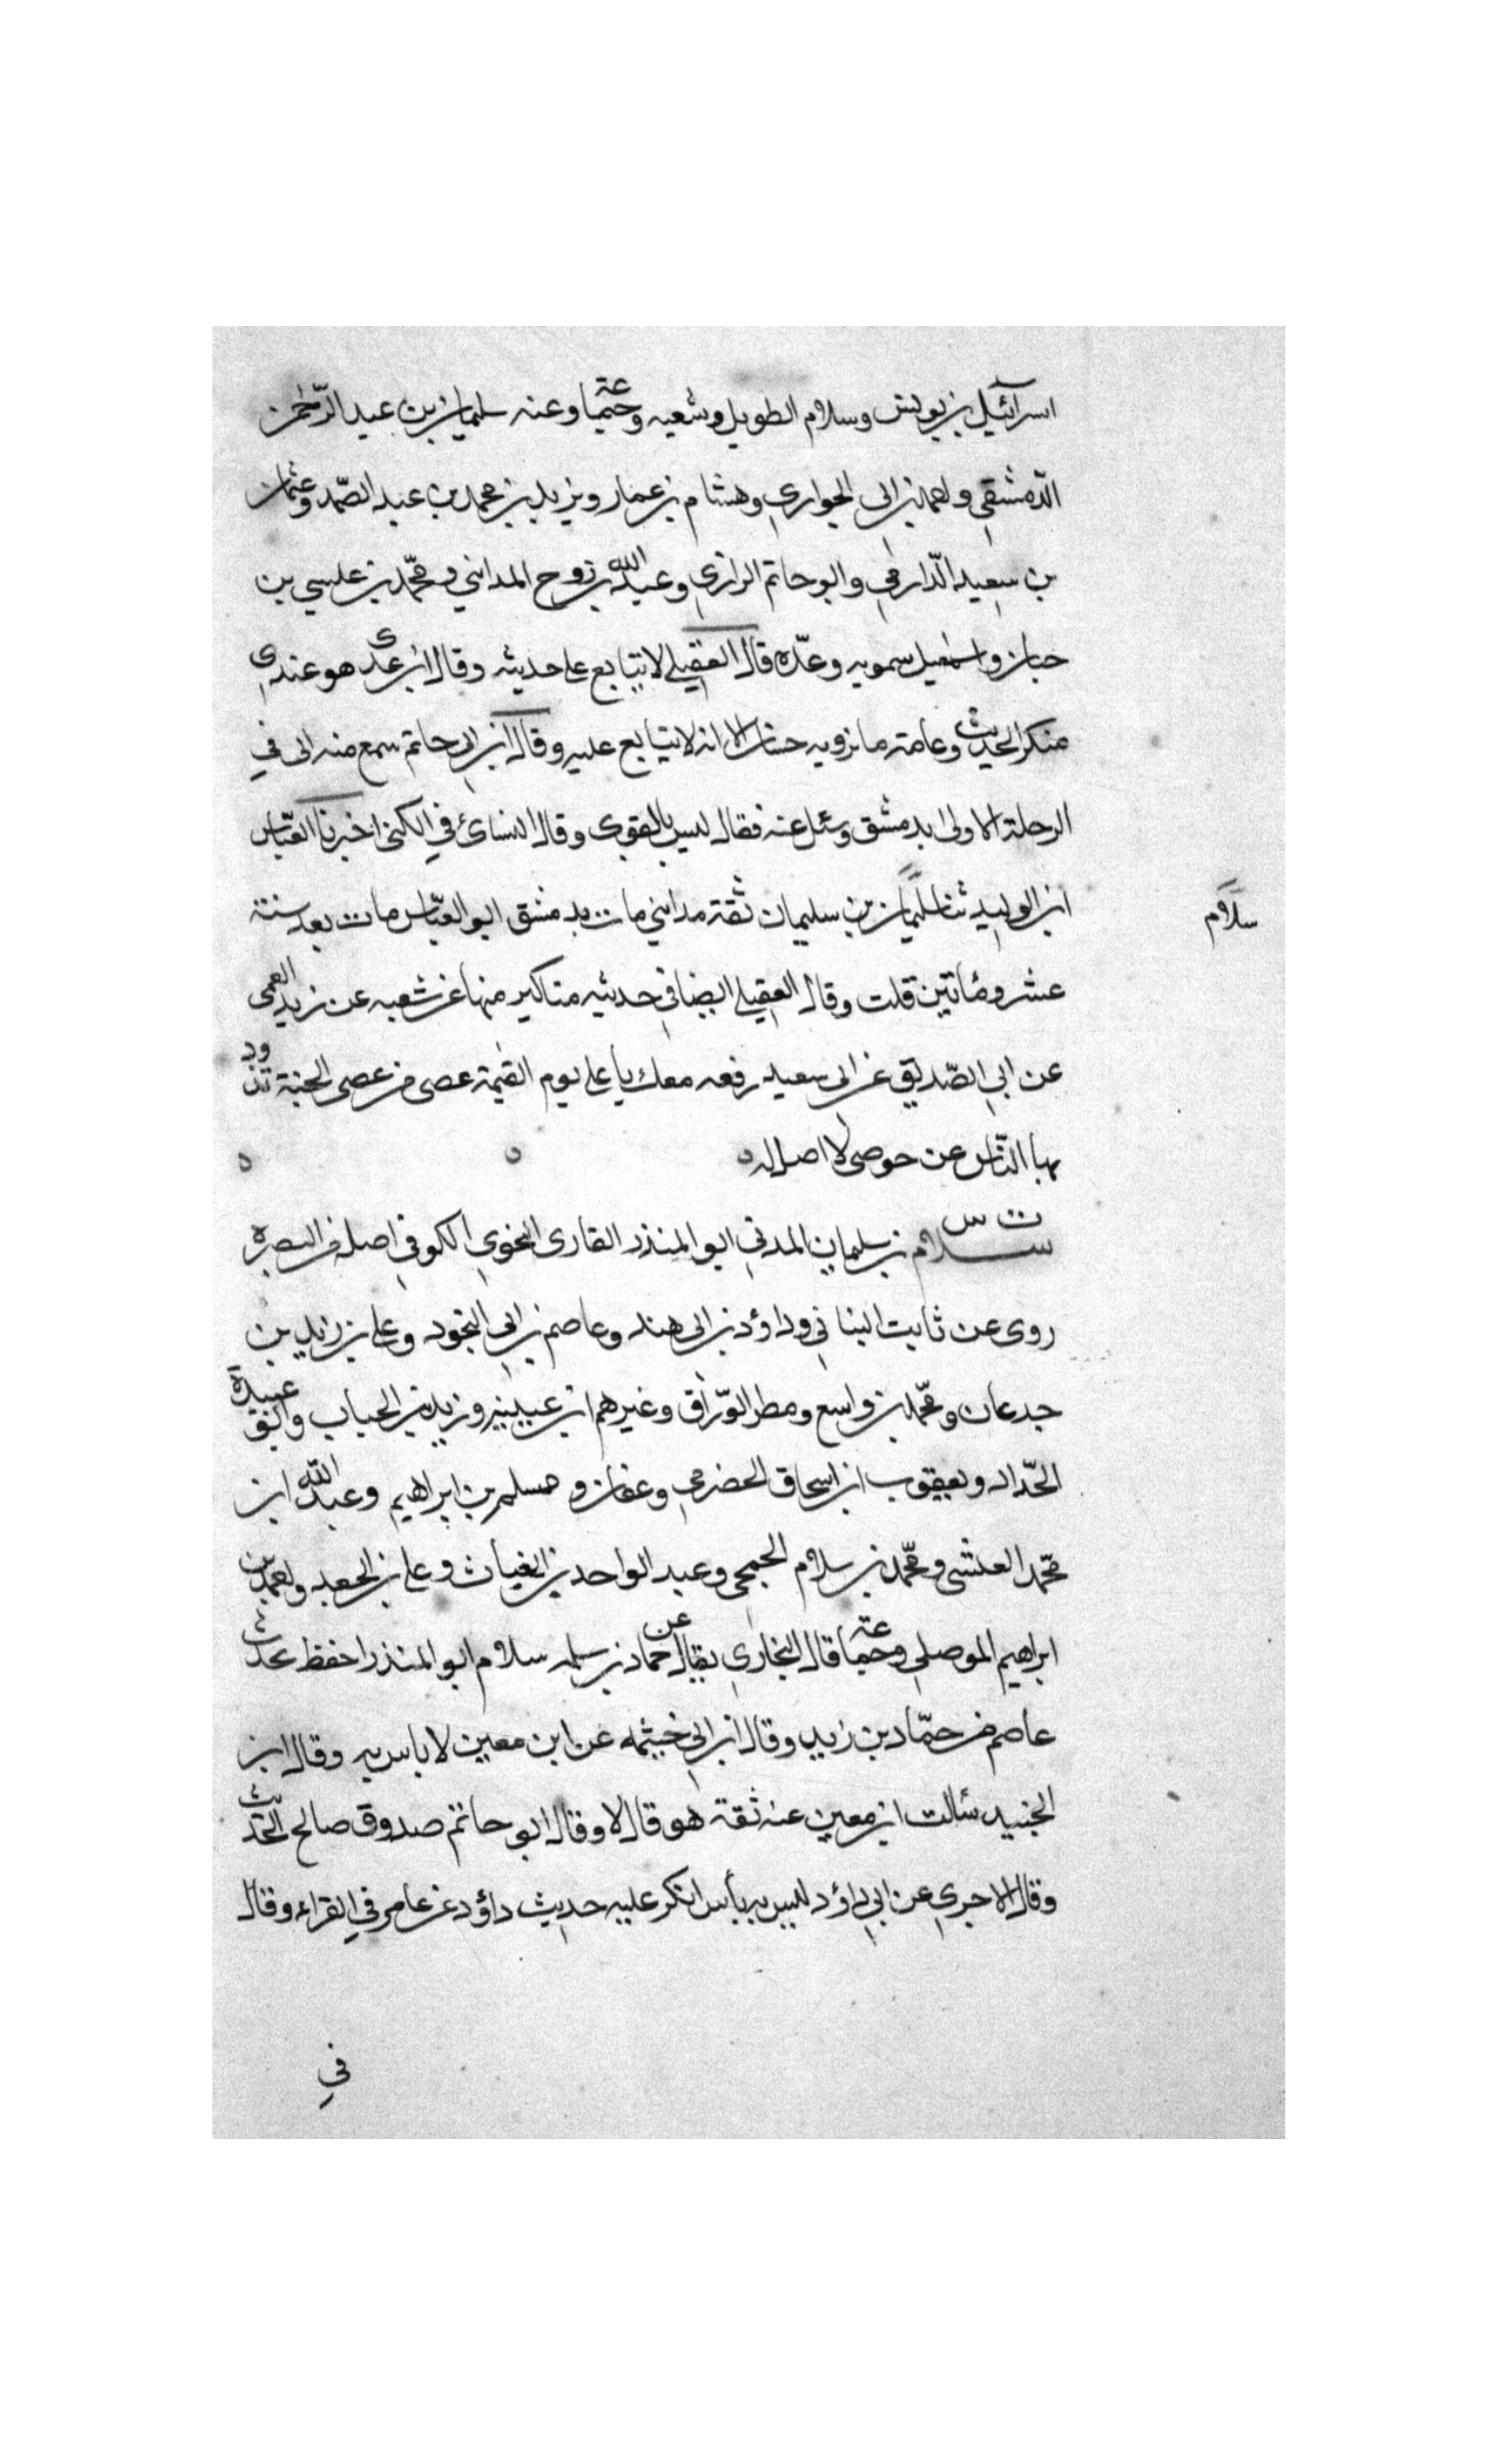 اسرآئيل بن يونس وسلام الطويل وشعبه وجماعة وعنه سليمان بن عبد الرحمن
الدمشقي واحمد بن ابى الحواري وهشام بن عمار ويزيد بن محمد بن عبد الصمد وعثمان
بن سعيد الدارمي وابو حاتم الرازي وعبد الله بن روح المدايني ومحمد بن عيسي بن
حبان واسمعيل سمويه وعدّه قال العقيلي لا يتابع على حديثه وقال ابن عدى هو عندي
منكر الحديث وعامة ما يرويه حسان الا انه لا يتابع عليه وقال ابن ابى حاتم سمع منه ابى في
الرحلة الاولى بدمشق وسئل عنه فقال ليس بالقوى وقال النسائ في الكنى اخبرنا العبّاس
ابن الوليد ثنا سليمان بن سليمان ثقة مدايني مات بدمشق ابو العبّاس مات بعد سنة
سلام
عشر ومأتين قلت وقال العقيلي ايضا في حديثه مناكير منها عن شعبه عن زيد العمى
عن ابي الصّديق عن ابى سعيد رفعه معك يا على يوم القيمة عصى من عصى الجنة تذود
بها النّاس عن حوضى لا اصل له
ت س
سلام بن سليمان المدني ابو المنذر القارى النحوي الكوفي اصله من البصره
روى عن ثابت البناني وداؤد بن ابى هند وعاصم بن ابي النجود وعلى بن زيد بن
جدعان ومحّمد بن واسع ومطر الورّاق وغيرهم ابن عيينه وزيد بن الحباب وابو عبيدة
الحدّاد ويعقوب ابن اسحاق الحضرمي وعفان ومسلم بن ابراهيم وعبد الله ابن
محّمد العيشى ومحّمد بن سلام الجمحى وعبد الواحد بن غياث وعلى بن الجعد واحمد بن
ابراهيم الموصلي وجماعة قال البخاري يقال عن حماد بن سلمه سلام ابو المنذر احفظ لحديث
عاصم من حمّاد بن زيد وقال ابن ابي خيثمه عن ابن معين لا باس به وقال ابن
الجنيد سألت ابن معين عنه ثقة هو قال لا وقال ابو حاتم صدوق صالح الحديث
وقال الاجري عن ابي داؤد ليس به بأس انكر عليه حديث داؤد عن عامر في القراءه وقال
في